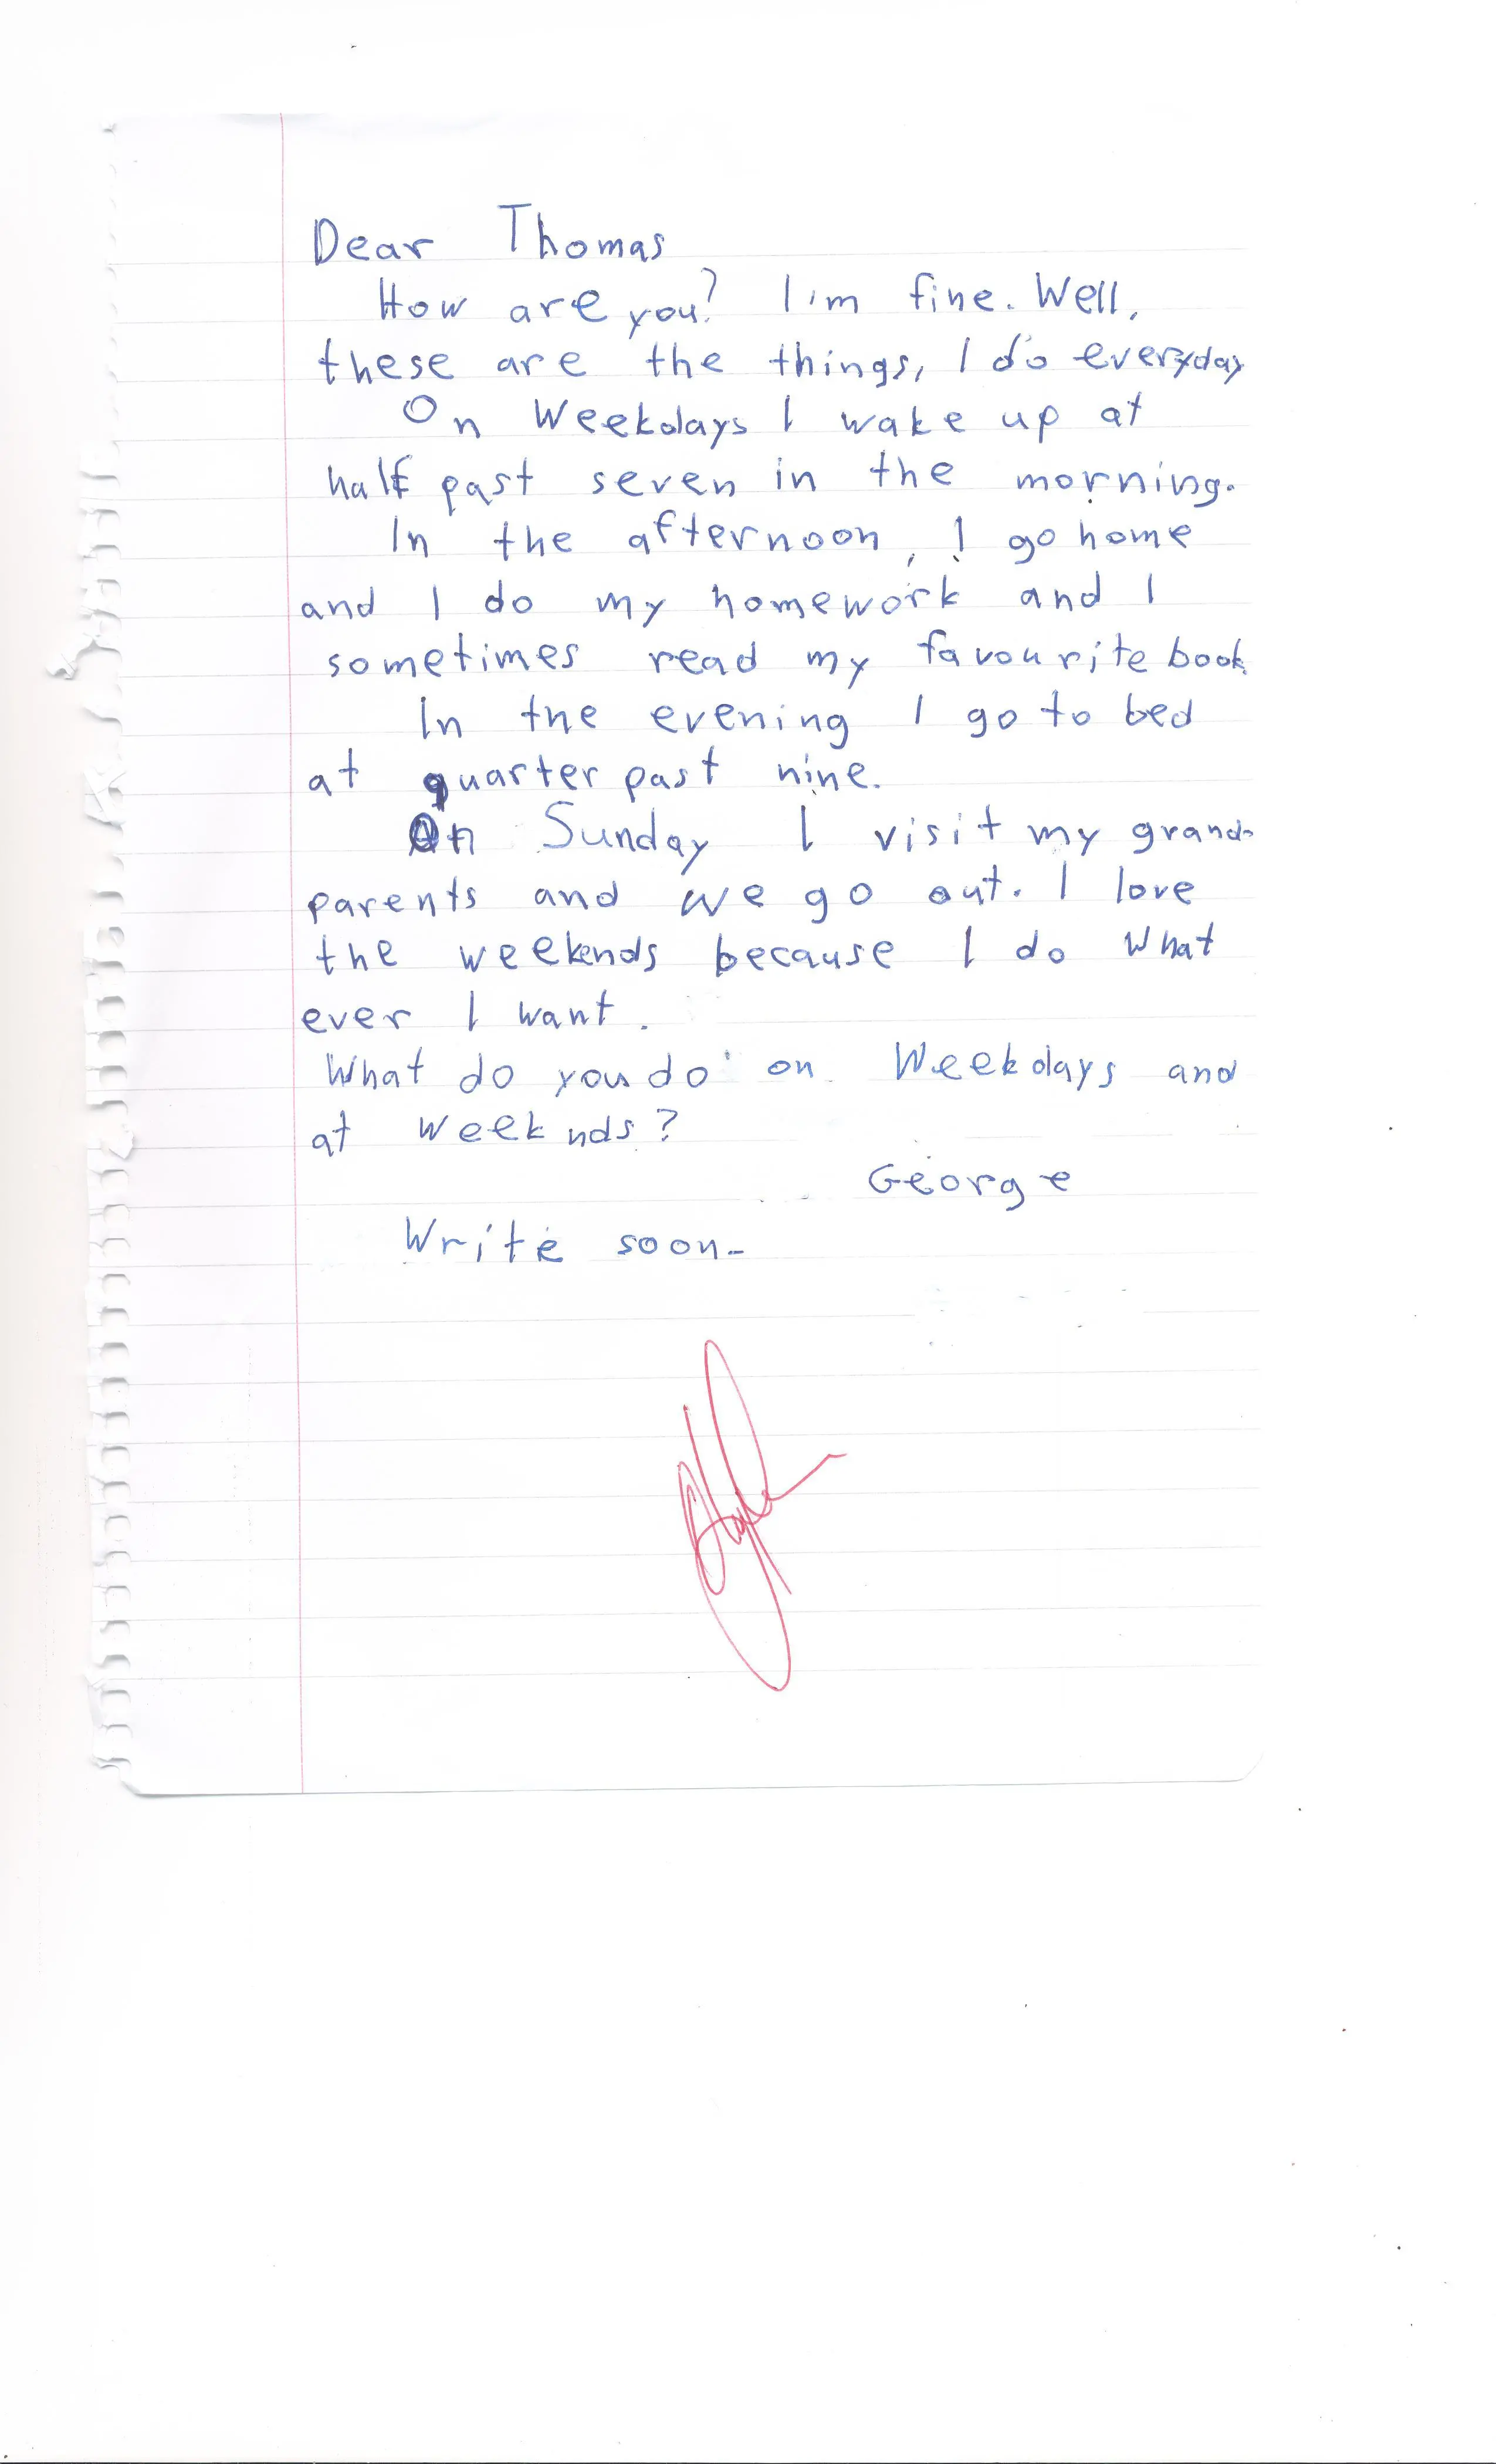 Dear Thomas
How are you? I'm fine. Well,
these are the things, I do everyday
On Weekdays I wake up at
half past seven in the morning.
In the afternoon, I go home
and I do my homework and I
sometimes read my favourite book.
In the evening I go to bed
at quarter past nine.
On Sunday I visit my grand-
parents and we go out. I love
the weekends because I do what
ever I want.
What do you do on Weekdays and
at weeknds?
George
Write soon-